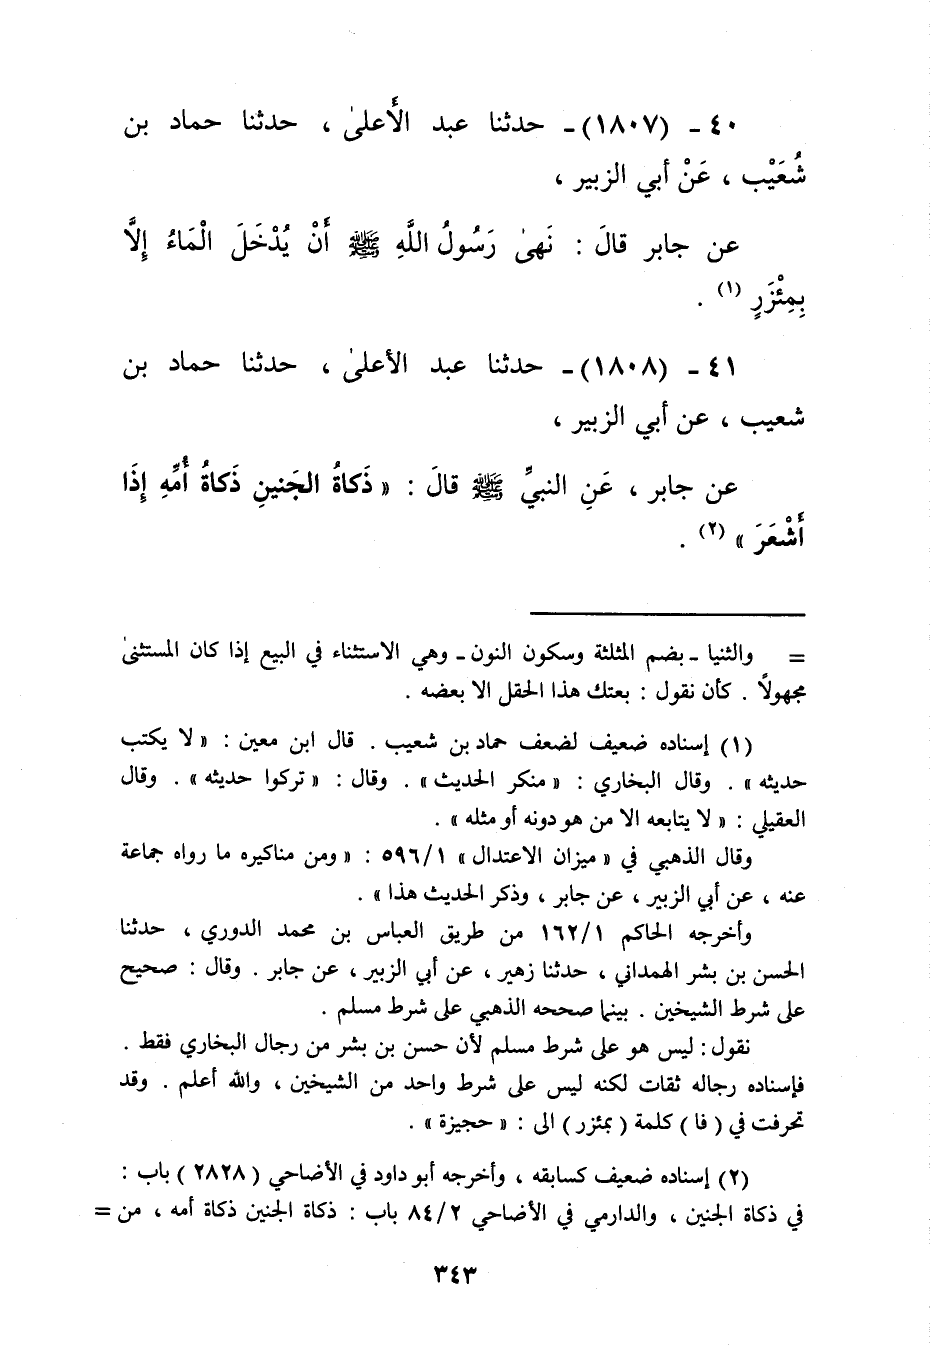 ٤٠ - (١٨٠٧) - حدثنا عبد الأَعلىٰ ، حدثنا حماد بن
شُعَيْب ، عَنْ أبي الزبير ،
عن جابر قالَ : نَهىٰ رَسُولُ اللَّهِ ﷺ أَنْ يُدْخَلَ الْمَاءُ إِلَّا
بِمِئْزَرٍ (١) .
٤١ - (١٨٠٨) - حدثنا عبد الأعلىٰ ، حدثنا حماد بن
شعيب ، عن أبي الزبير ،
عن جابر ، عَنِ النبيِّ ﷺ قالَ : « ذَكاةُ الجَنينِ ذَكاةُ أُمِّهِ إِذَا
أَشْعَرَ » (٢) .
= والثنيا - بضم المثلثة وسكون النون - وهي الاستثناء في البيع إذا كان المستثنىٰ
مجهولاً . كأن نقول : بعتك هذا الحقل الا بعضه .
(١) إسناده ضعيف لضعف حماد بن شعيب . قال ابن معين : « لا يكتب
حديثه » . وقال البخاري : « منكر الحديث » . وقال : « تركوا حديثه » . وقال
العقيلي : « لا يتابعه الا من هو دونه أو مثله » .
وقال الذهبي في « ميزان الاعتدال » ٥٩٦/١ : « ومن مناكيره ما رواه جماعة
عنه ، عن أبي الزبير ، عن جابر ، وذكر الحديث هذا » .
وأخرجه الحاكم ١٦٢/١ من طريق العباس بن محمد الدوري ، حدثنا
الحسن بن بشر الهمداني ، حدثنا زهير ، عن أبي الزبير ، عن جابر . وقال : صحيح
على شرط الشيخين . بينما صححه الذهبي على شرط مسلم .
نقول : ليس هو على شرط مسلم لأن حسن بن بشر من رجال البخاري فقط .
فإسناده رجاله ثقات لكنه ليس على شرط واحد من الشيخين ، والله أعلم . وقد
تحرفت في ( فا ) كلمة ( بمئزر ) الى : « حجيزة » .
(٢) إسناده ضعيف كسابقه ، وأخرجه أبو داود في الأضاحي ( ٢٨٢٨ ) باب :
في ذكاة الجنين ، والدارمي في الأضاحي ٨٤/٢ باب : ذكاة الجنين ذكاة أمه ، من =
٣٤٣